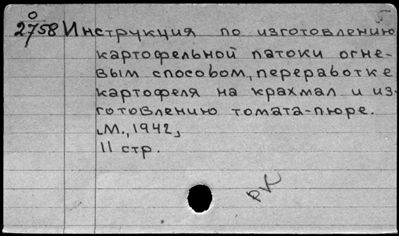 О
2758 Инструкция по изготовлению
картофельной патоки огне-
вым способом, переработке
картофеля на крахмал и из-
готовлению томата-пюре.
М., 1942,
11 стр.
РК